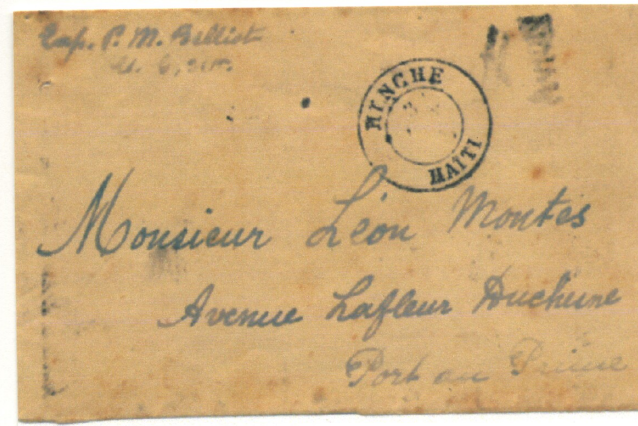 Exp. P. M. Belliot
HINCHE
HAITI
Monsieur Léon Montas
Avenue Lafleur Duchene
Port au Prince